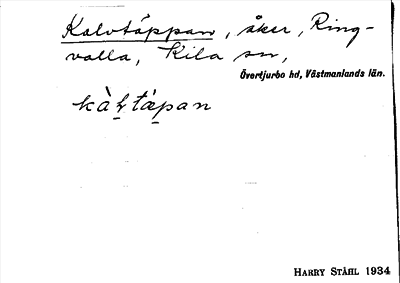 Kalvtäppan, åker, Ring-
valla, Kila sn,
Övertjurbo hd, Västmanlands län.
kàḷtæpan
HARRY STÅHL 1934